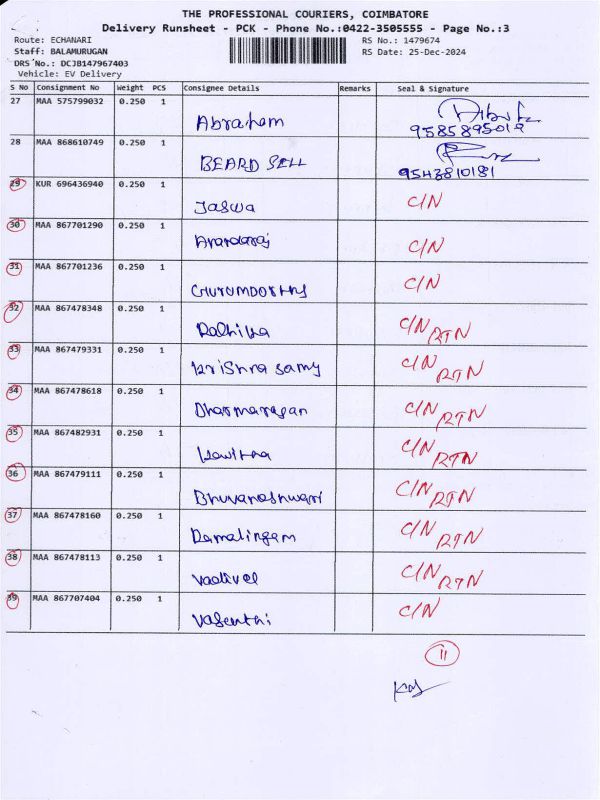 THE PROFESSIONAL COURIERS, COIMBATORE
Delivery Runsheet - PCK - Phone No.:0422-3505555 - Page No.:3
Route: ECHANARI RS No.: 1479674
Staff: BALAMURUGAN RS Date: 25-Dec-2024
DRS No.: DCJB147967403
Vehicle: EV Delivery
S No Consignment No Weight PCS Consignee Details Remarks Seal & Signature
27 MAA 575799032 0.250 1 Abraham
9585895019
28 MAA 868610749 0.250 1 BEARD SELL
9543810181
29 KUR 696436940 0.250 1 Jaswa C/N
30 MAA 867701290 0.250 1 Avardaraj C/N
31 MAA 867701236 0.250 1 C/N
32 MAA 867478348 0.250 1 C/N RTN
33 MAA 867479331 0.250 1 Krishna samy C/N RTN
34 MAA 867478618 0.250 1 Dharmaragan C/N RTN
35 MAA 867482931 0.250 1 Kavitha C/N RTN
36 MAA 867479111 0.250 1 Bhuvaneshwari C/N RTN
37 MAA 867478160 0.250 1 Ramalingam C/N RTN
38 MAA 867478113 0.250 1 Vadivel C/N RTN
39 MAA 867707404 0.250 1 Vasenthi C/N
11